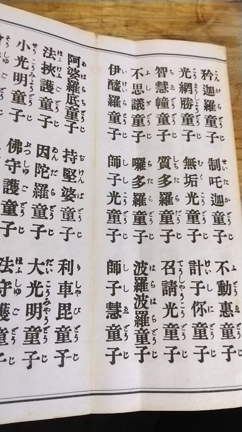 矜迦羅童子 制吒迦童子 不動惠童子
光網勝童子 無垢光童子 計子你童子
智慧幢童子 質多羅童子 召請光童子
不思議童子 囉多羅童子 波羅波羅童子
伊醯羅童子 師子光童子 師子慧童子
阿婆羅底童子 持堅婆童子 利車毘童子
法挾護童子 因陀羅童子 大光明童子
小光明童子 佛守護童子 法守護童子